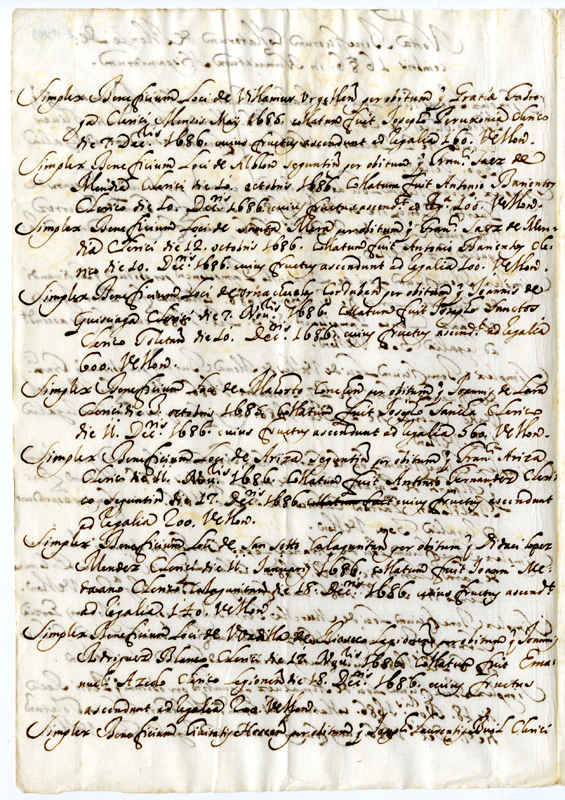 Simplex Beneficium Loci de Vilhamur Urgellen per obitum q Gratiæ
Clerici Mensis Maij 1686. collatum fuit Josepho Clerico
die 7. Decris 1686. cuius fructus ascendunt ad Regalia 160. Vellon.
Simplex Beneficium Loci de Seguntin per obitum q Franci Saez de
Mendia Clerici die 10. octobris 1686. Collatum fuit Antonio Barientos
Clerico die 10. Decris 1686. cuius fructus ascendt ad 100. Vellon.
Simplex Beneficium Loci de Santa Mera per obitum q Franci Saez de Men-
dia Clerici die 12. octobris 1686. Collatum fuit Antonio Barientos Cle-
rico die 10. Decris 1686. cuius fructus ascendunt ad Regalia 100. Vellon
Simplex Beneficium Loci de Ornachuelos Corduben per obitum q Joannis de
Clerici die 7. Nouris 1686. Collatum fuit Josepho Santos
Clerico Toletan die 10. Decris 1686. cuius fructus ascendt ad Regalia
600. Vellon.
Simplex Beneficium Loci de Conchen per obitum q Joannis de Lara
Clerici die octobris 1686. Collatum fuit Josepho Clerico
die 11. Decris 1686. cuius fructus ascendunt ad Regalia 360. Vellon.
Simplex Beneficium Loci de Ariza Seguntin per obitum q Franci Ariza
Clerici die 11. Nouris 1686. Collatum fuit Antonio Fernandez Cleri-
co Seguntin die 17. Decris 1686. cuius fructus ascendunt
ad Regalia 200. Vellon.
Simplex Beneficium Loci de San Calaguritan per obitum q Didaci Lopez
Mendez Clerici die 11. Januarij 1686. Collatum fuit Joanni Me-
drano Clerico Calaguritan die 18. Decris 1686. cuius fructus ascendt
ad Regalia 140. Vellon.
Simplex Beneficium Loci de Legionen per obitum q Joannis
Rodriguez Blanco Clerici die 17. Nouris 1686. Collatum fuit Ema-
nueli Azedo Clerico Legionen die 18. Decris 1686. cuius fructus
ascendunt ad Regalia 200. Vellon.
Simplex Beneficium Civitatis per obitum q Laurentij Clerici